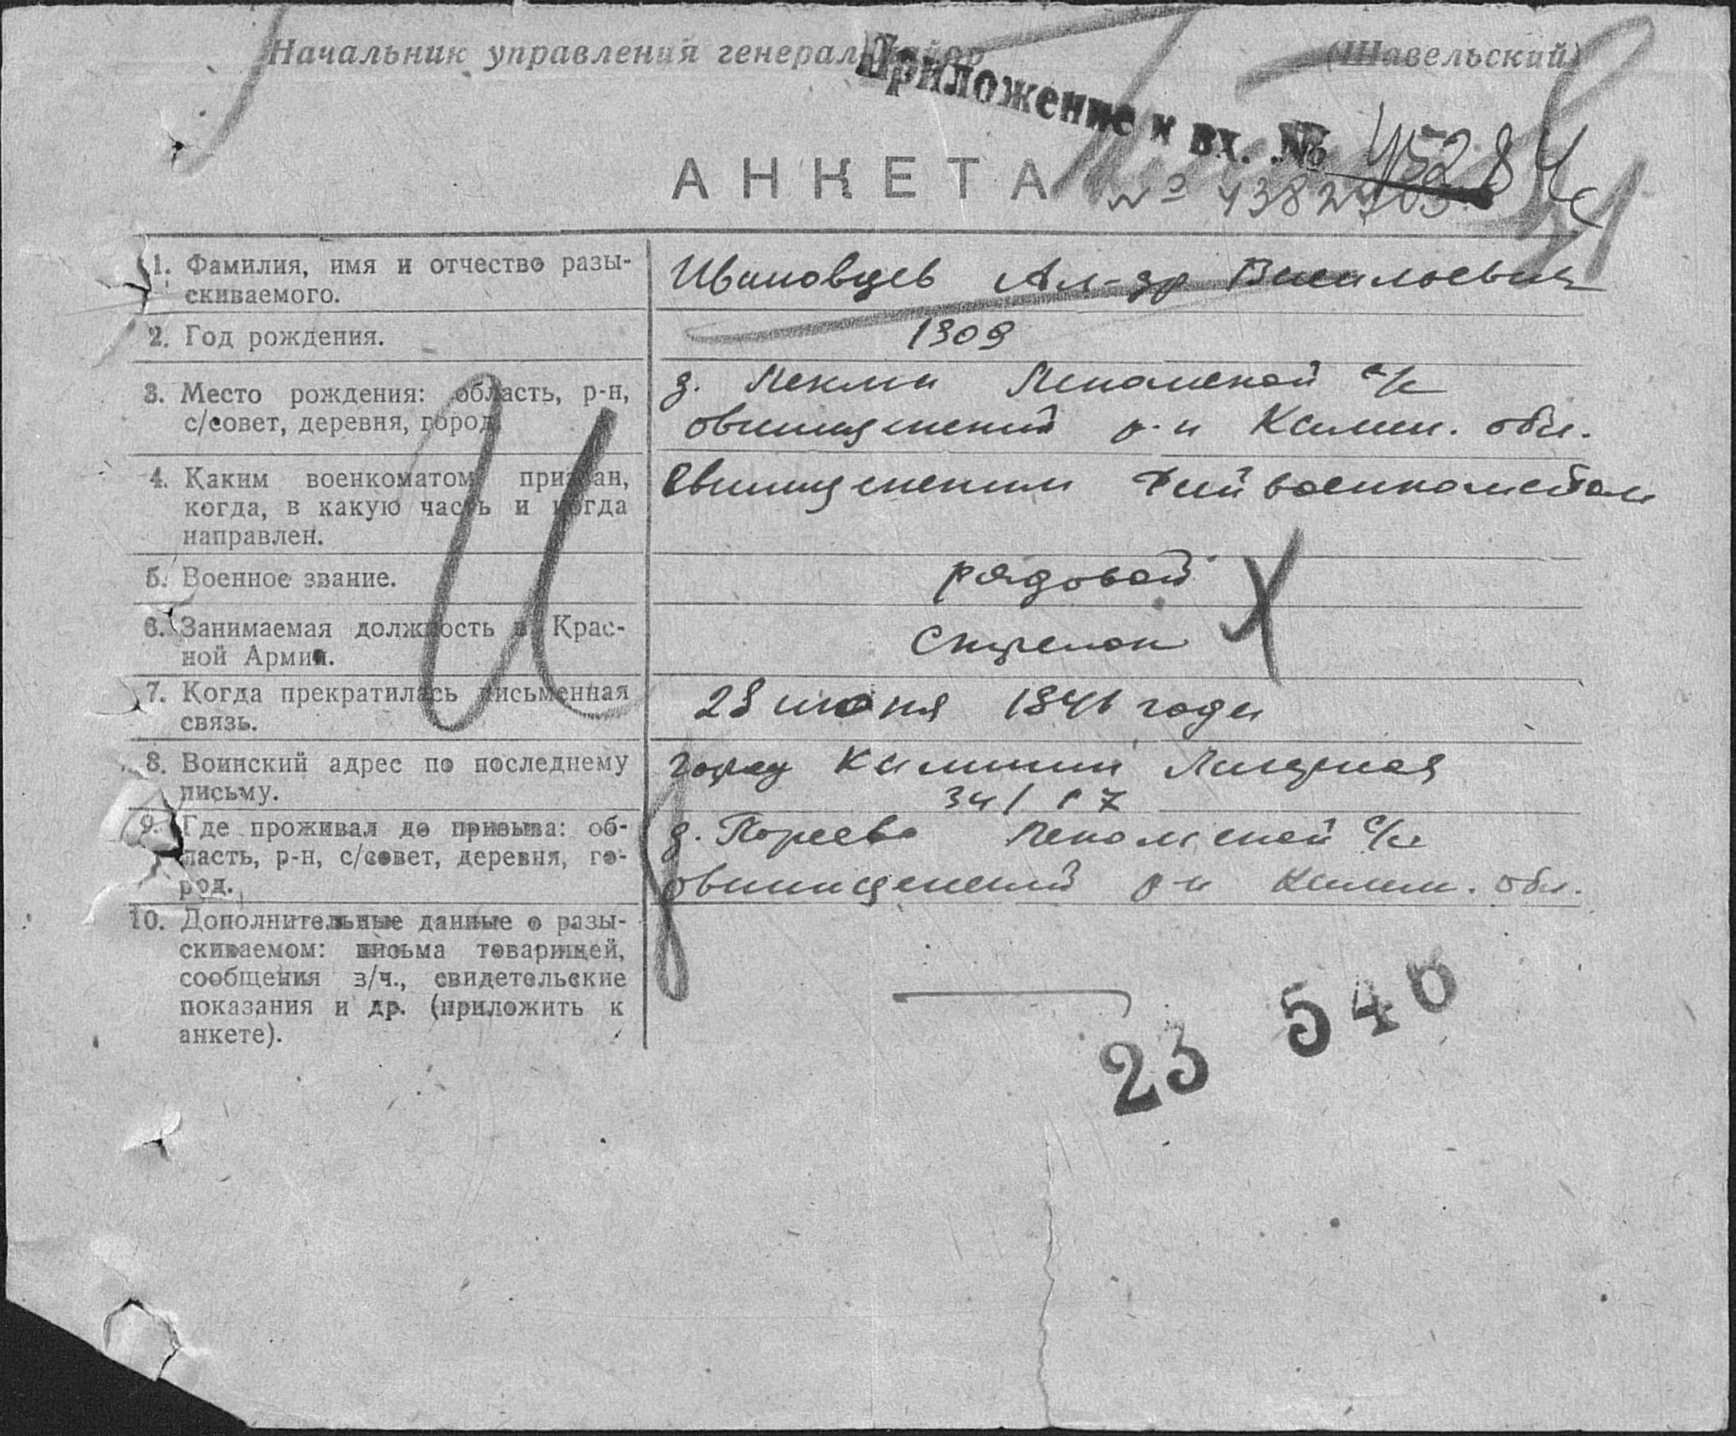 Начальник управления генерал-майор (Шавельский)
Приложение к вх. № 45284с
АНКЕТА
№ 43827
1. Фамилия, имя и отчество разы-
скиваемого.
Ивановцев Ал-др Васильевич
2. Год рождения.
1909
3. Место рождения: область, р-н,
с/совет, деревня, город.
д. с/с
Овинищенский р-н Калин. обл.
4. Каким военкоматом призван,
когда, в какую часть и когда
направлен.
Овинищенским Райвоенкоматом
5. Военное звание.
рядовой
6. Занимаемая должность в Крас-
ной Армии.
Стрелок
7. Когда прекратилась письменная
связь.
28 июня 1941 года
8. Воинский адрес по последнему
письму.
город Калинин
34/17
9. Где проживал до призыва: об-
ласть, р-н, с/совет, деревня, го-
род.
д. с/с
Овинищенский р-н Калин. обл.
10. Дополнительные данные о разы-
скиваемом: письма товарищей,
сообщения в/ч., свидетельские
показания и др. (приложить к
анкете).
И
23 546